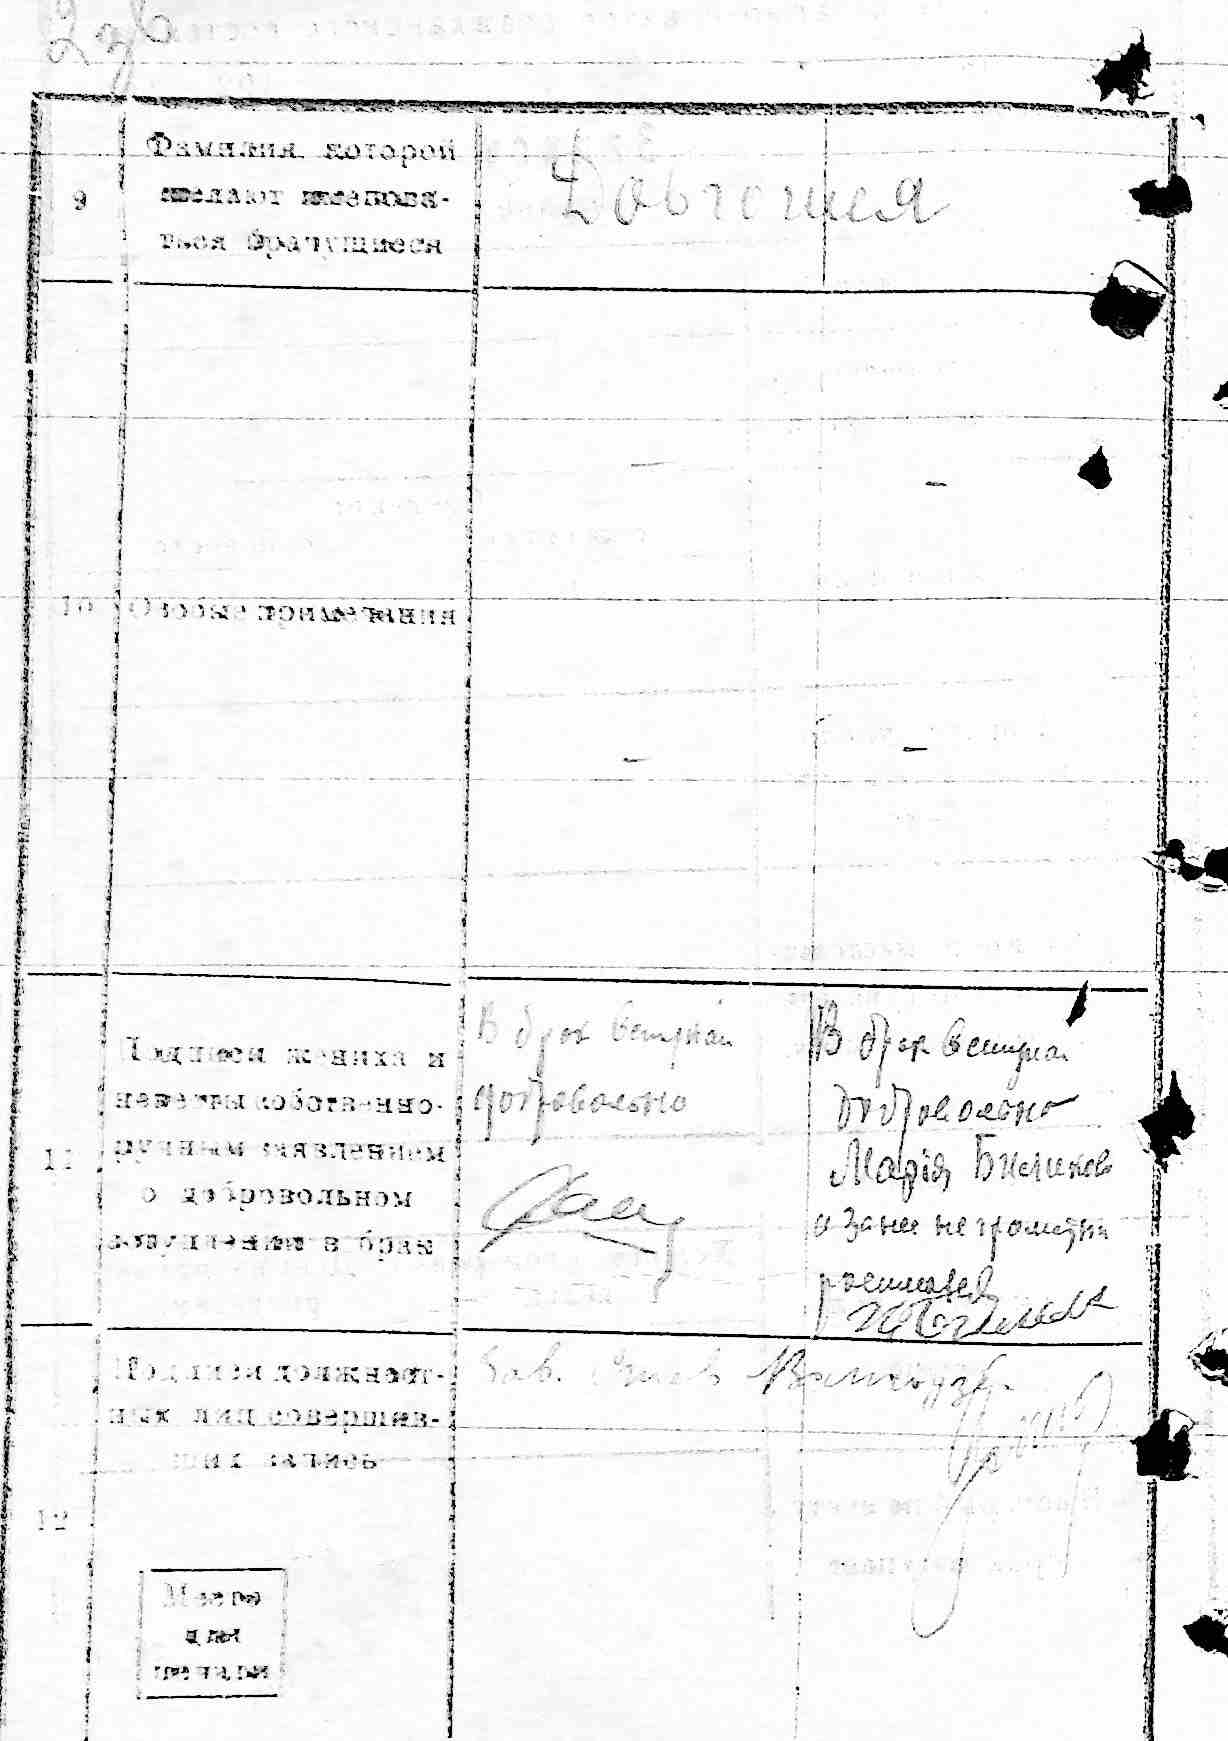 9
Фамилия которой
желают именова-
ться брачущиеся
Довгошея
10
Особые примечания
11
Подписи жениха и
невесты собственно-
ручными
о добровольном
в брак
В брак вступаю
добровольно
В брак вступаю
добровольно
Марія
а за нее неграмотну
12
Подписи должност-
ных лиц совершив-
ших запись
Зав.
Место
для
печати